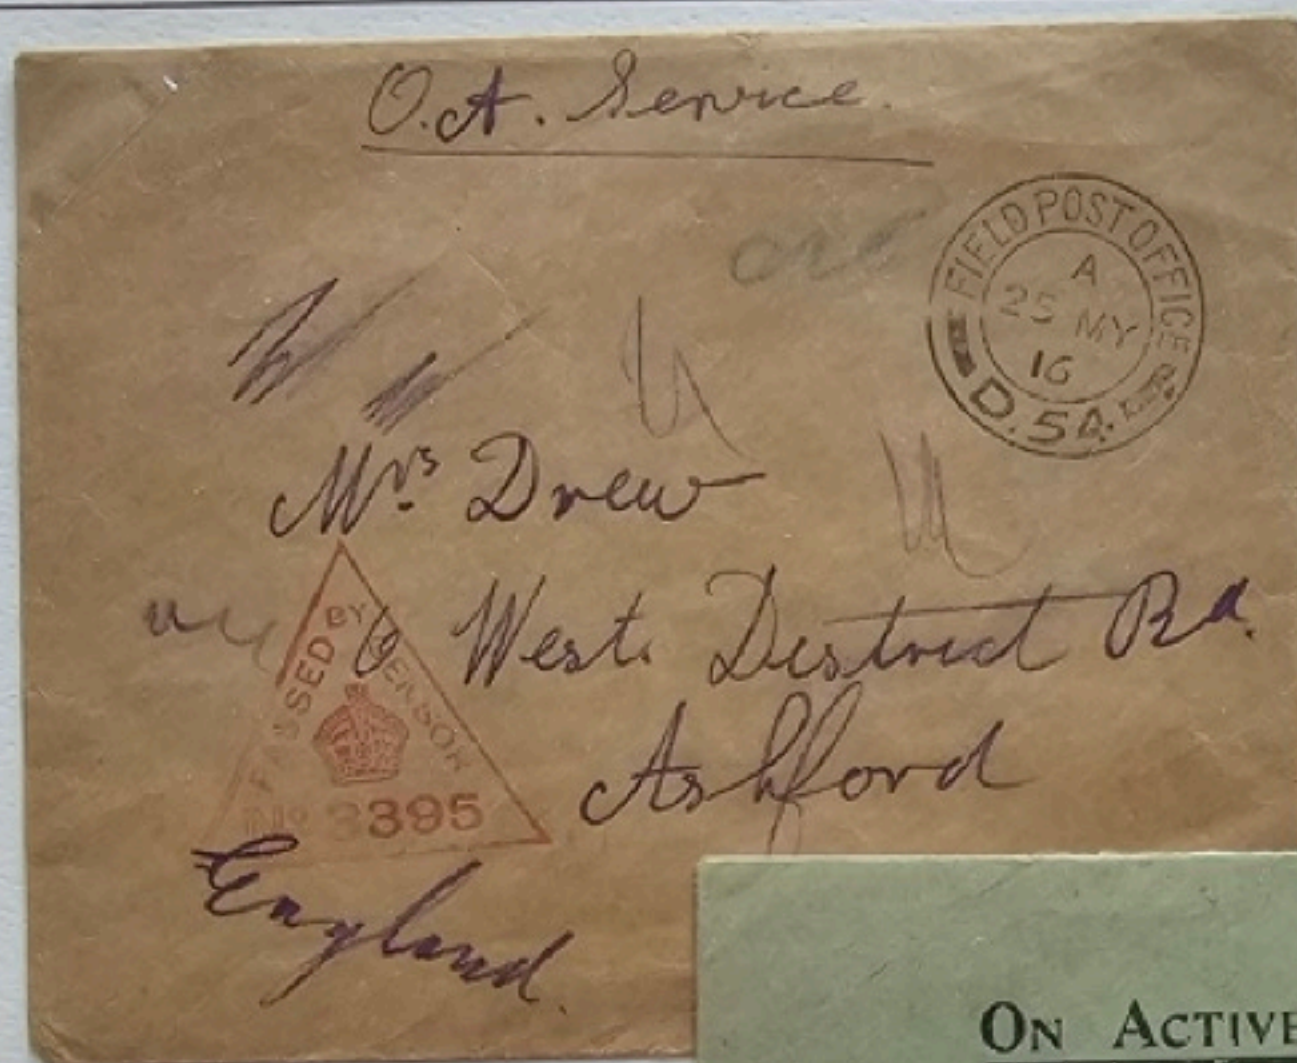 O.A. Service.
FIELD POST OFFICE
A
25 MY
16
D.54.
Mrs. Drew
6 West. District Rd.
PASSED BY CENSOR
No 3395
Ashford
England.
ON ACTIVE